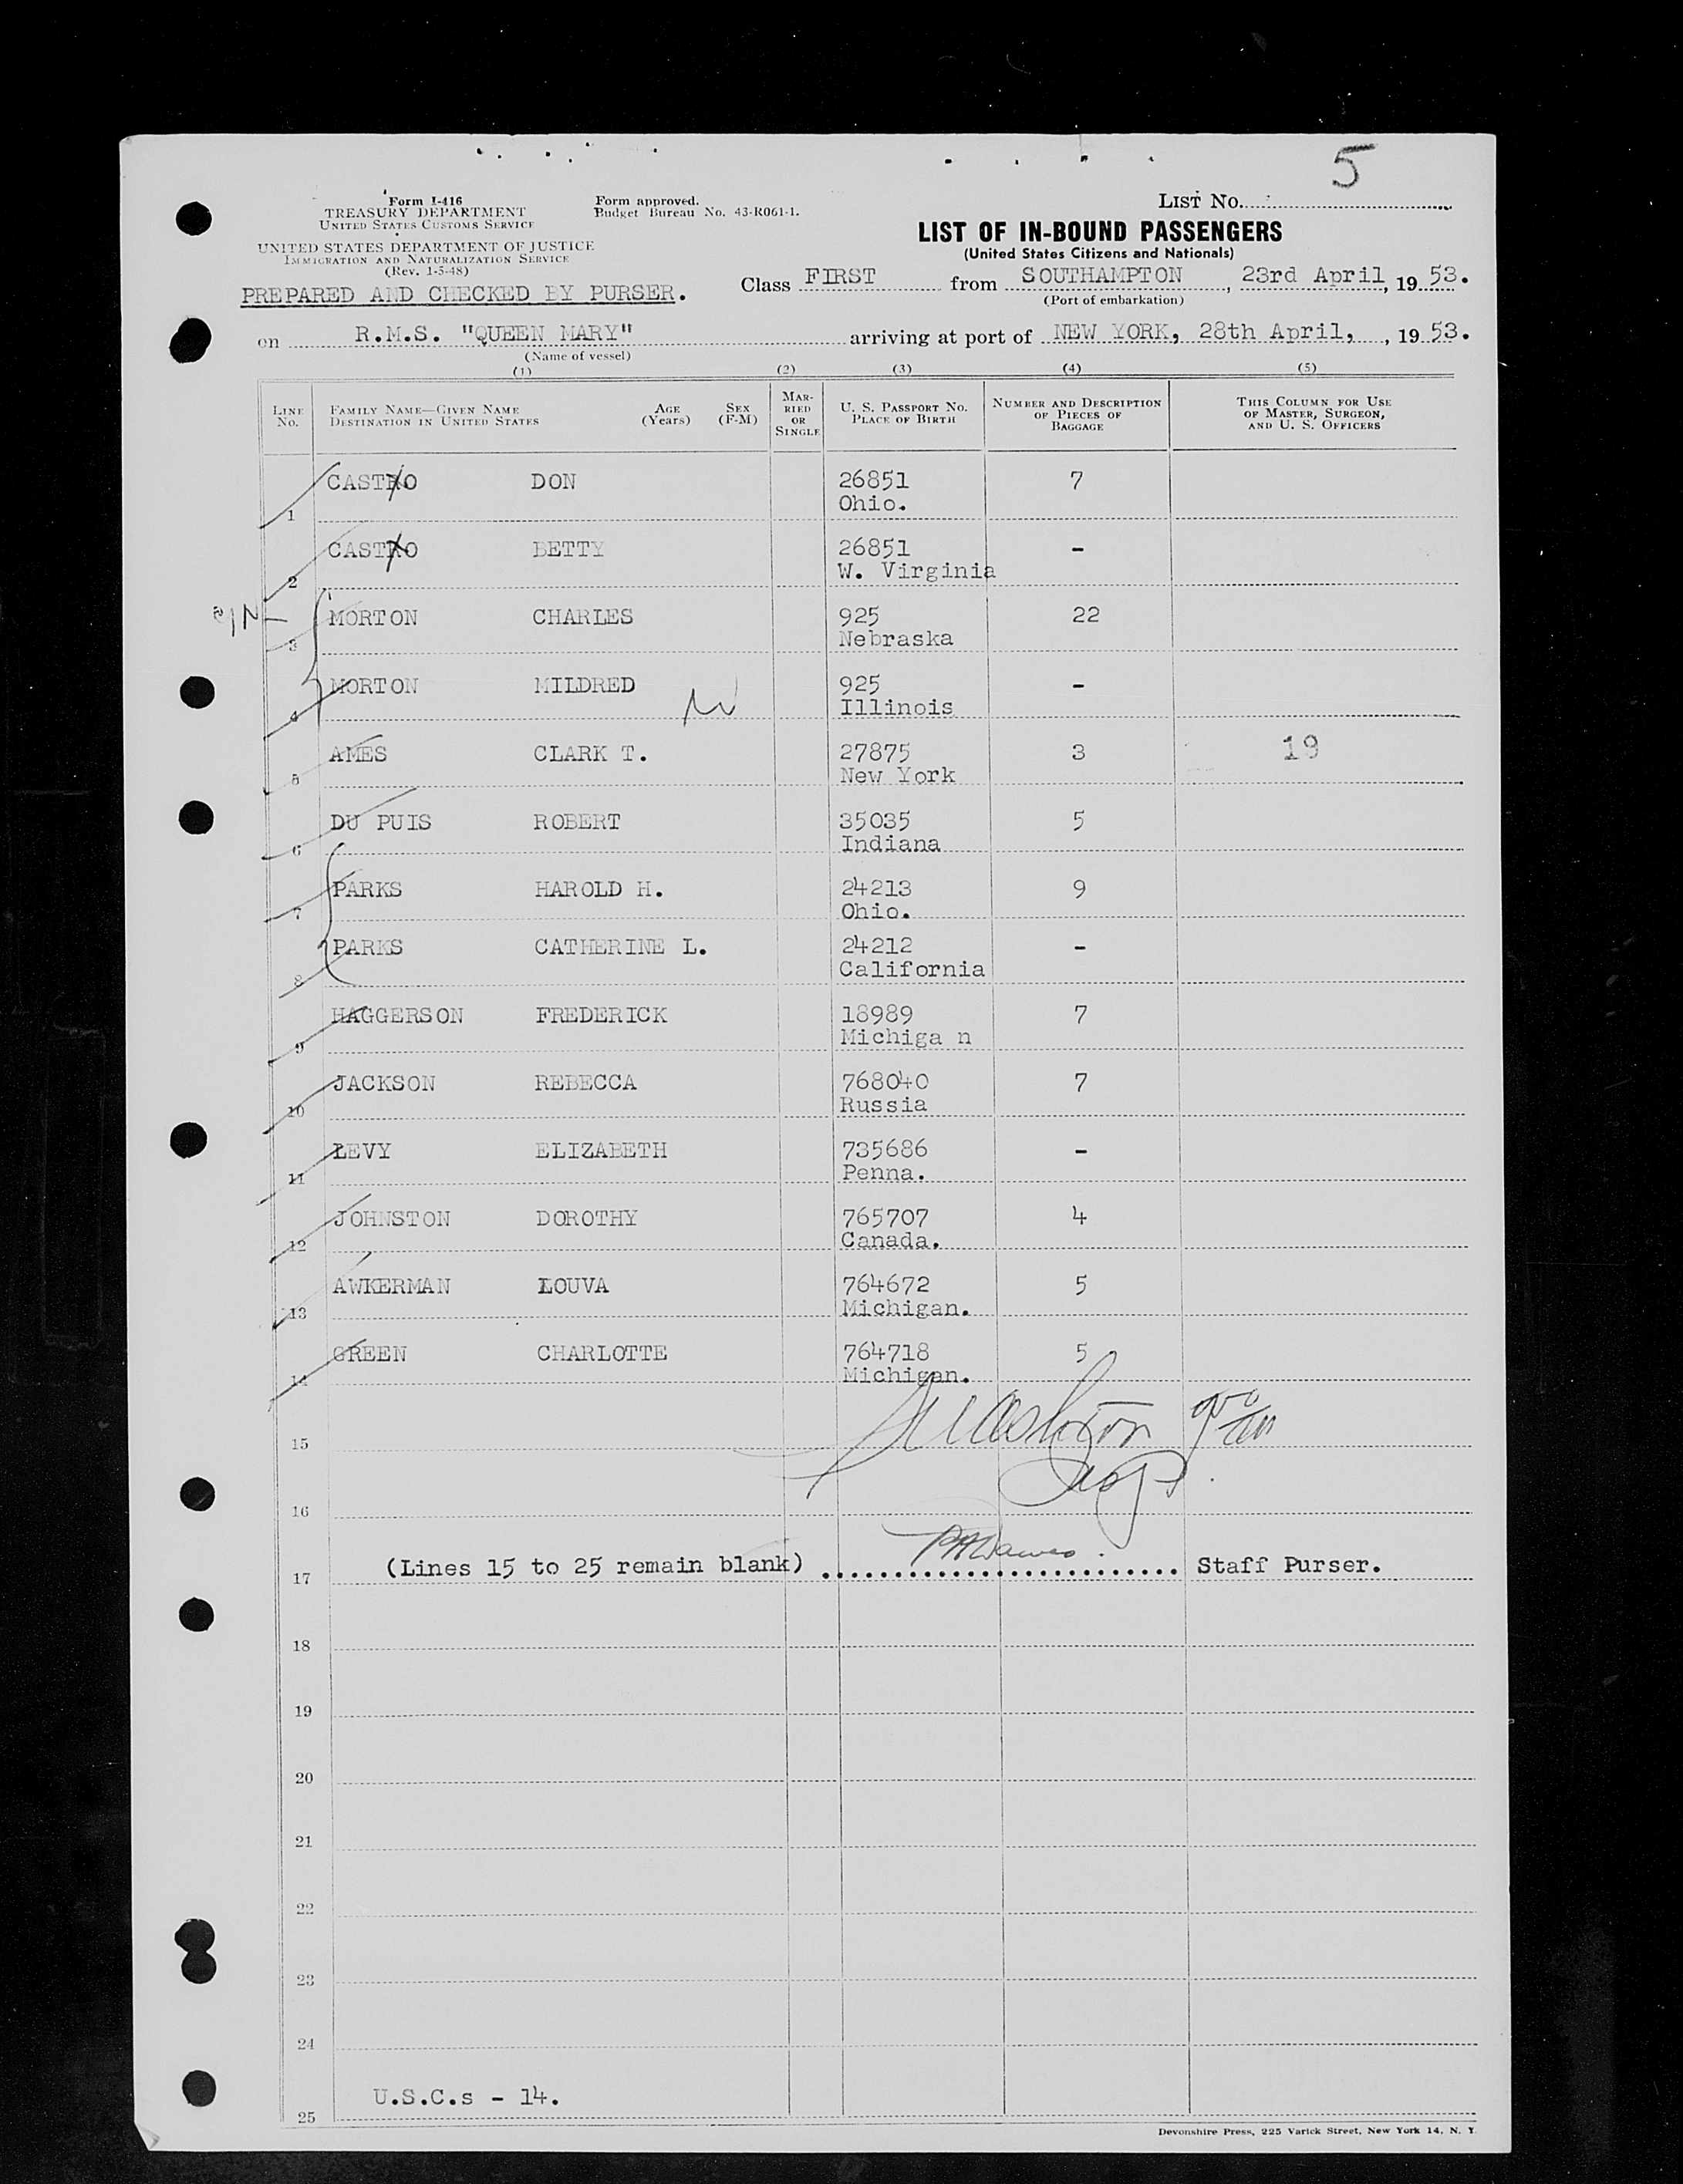 5
Form I-416
TREASURY DEPARTMENT
UNITED STATES CUSTOMS SERVICE
UNITED STATES DEPARTMENT OF JUSTICE
IMMIGRATION AND NATURALIZATION SERVICE
(Rev. 1-5-48)
Form approved.
Budget Bureau No. 43-R061-1.
LIST No.
LIST OF IN-BOUND PASSENGERS
(United States Citizens and Nationals)
PREPARED AND CHECKED BY PURSER.
Class FIRST from SOUTHAMPTON, 23rd April, 1953.
(Port of embarkation)
on R.M.S. "QUEEN MARY" arriving at port of NEW YORK, 28th April, , 1953.
(Name of vessel)
(1) (2) (3) (4) (5)
LINE No. FAMILY NAME—GIVEN NAME DESTINATION IN UNITED STATES AGE (Years) SEX (F-M) MARRIED OR SINGLE U. S. PASSPORT No. PLACE OF BIRTH NUMBER AND DESCRIPTION OF PIECES OF BAGGAGE THIS COLUMN FOR USE OF MASTER, SURGEON, AND U. S. OFFICERS
CASTRO DON 26851 7
1 Ohio.
CASTRO BETTY 26851 -
2 W. Virginia
MORTON CHARLES 925 22
3 Nebraska
MORTON MILDRED 925 -
4 Illinois
AMES CLARK T. 27875 3 19
5 New York
DU PUIS ROBERT 35035 5
6 Indiana
PARKS HAROLD H. 24213 9
7 Ohio.
PARKS CATHERINE L. 24212 -
8 California
HAGGERSON FREDERICK 18989 7
9 Michiga n
JACKSON REBECCA 768040 7
10 Russia
LEVY ELIZABETH 735686 -
11 Penna.
JOHNSTON DOROTHY 765707 4
12 Canada.
AWKERMAN LOUVA 764672 5
13 Michigan.
GREEN CHARLOTTE 764718 5
14 Michigan.
15
16
17 (Lines 15 to 25 remain blank) Staff Purser.
18
19
20
21
22
23
24
U.S.C.s - 14.
25
Devonshire Press, 225 Varick Street, New York 14, N. Y.